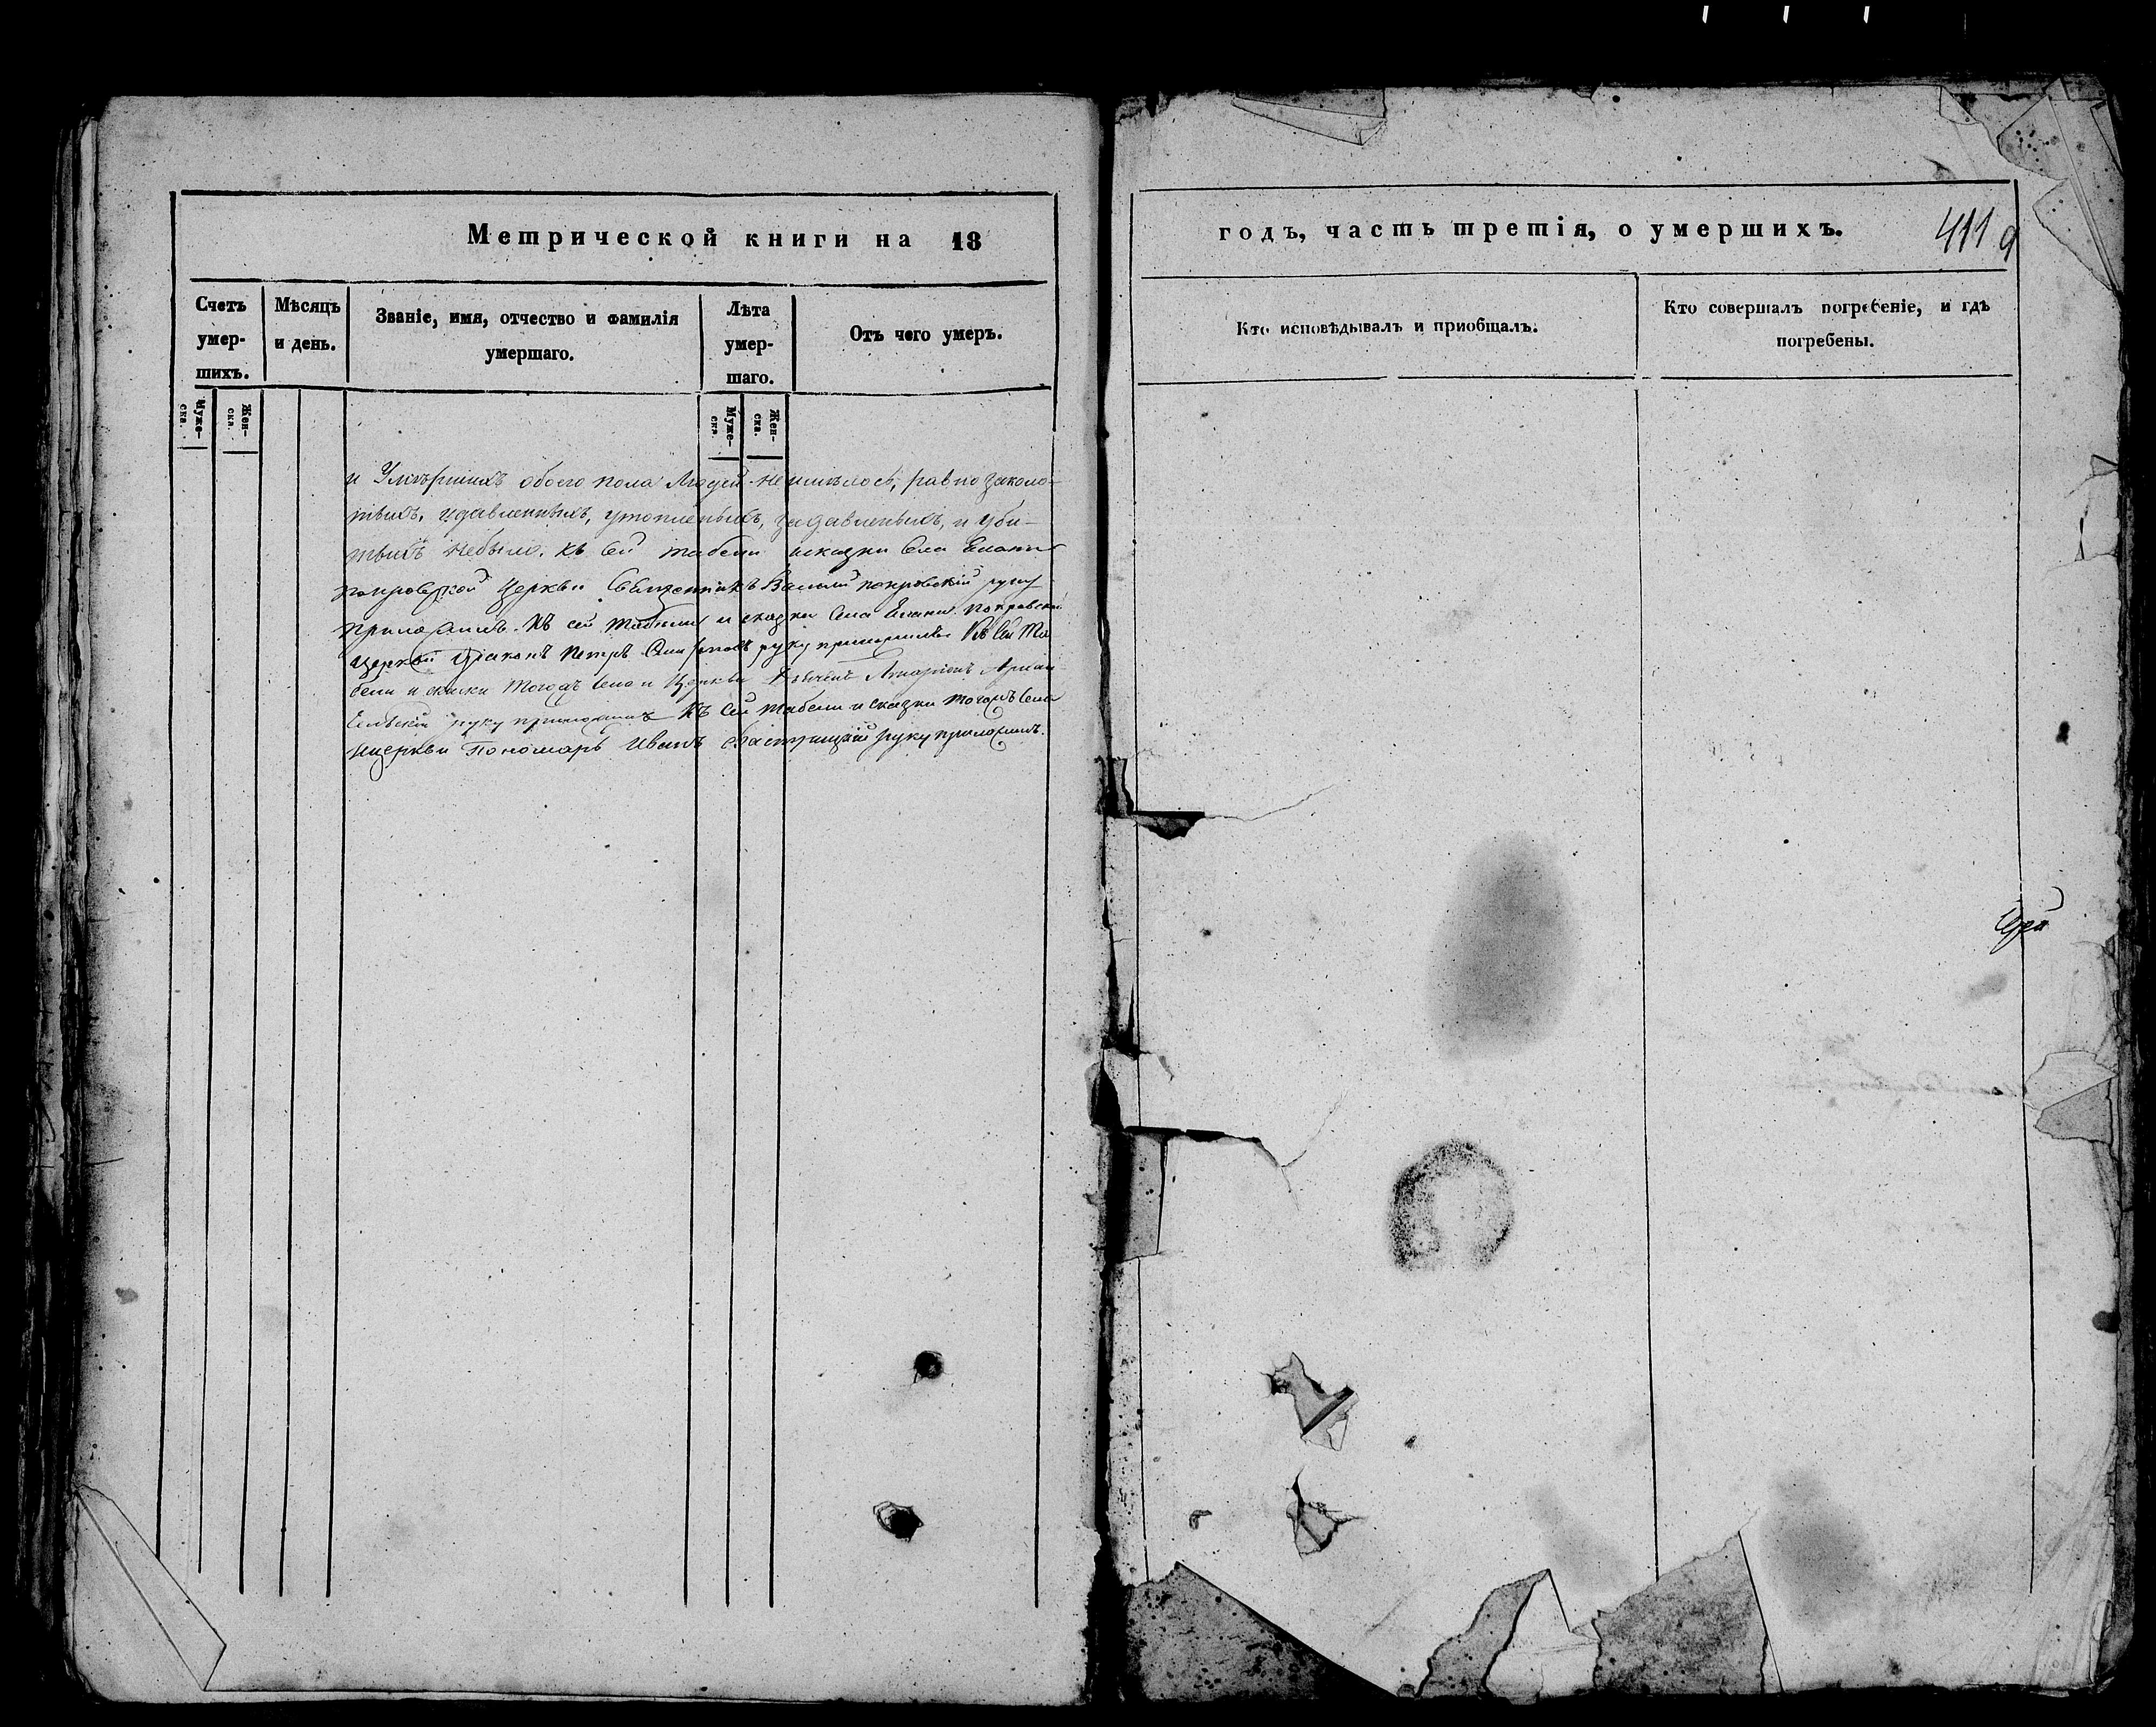 Метрической книги на 18
Счетъ умер-шихъ.
Мѣсяцъ и день.
Званіе, имя, отчество и фамилія умершаго.
Лѣта умер-шаго.
Отъ чего умеръ.
Муже-ска.
Жен-ска.
Муже-ска.
Жен-ска.
и Умершихъ обоего пола Людей неимѣлось, равно заколо-
тыхъ, удавленныхъ, утопленыхъ, задавленыхъ, и уби-
тыхъ небыло. къ сей табели исказки Села Елани
покровской Церкви Священникъ Василій покровскій руку
приложилъ. Къ сей табели и сказки Села Елани покровской
церкви Діаконъ Петръ руку приложилъ Къ сей та
бели и скаски тогожъ Села и Церкви
руку приложилъ Къ сей табели и сказки тогожъ Села
ицеркви Пономарь Иванъ руку приложилъ.
годъ, часть третія, о умершихъ.
411
Кто исповѣдывалъ и приобщалъ.
Кто совершалъ погребеніе, и гдѣ погребены.